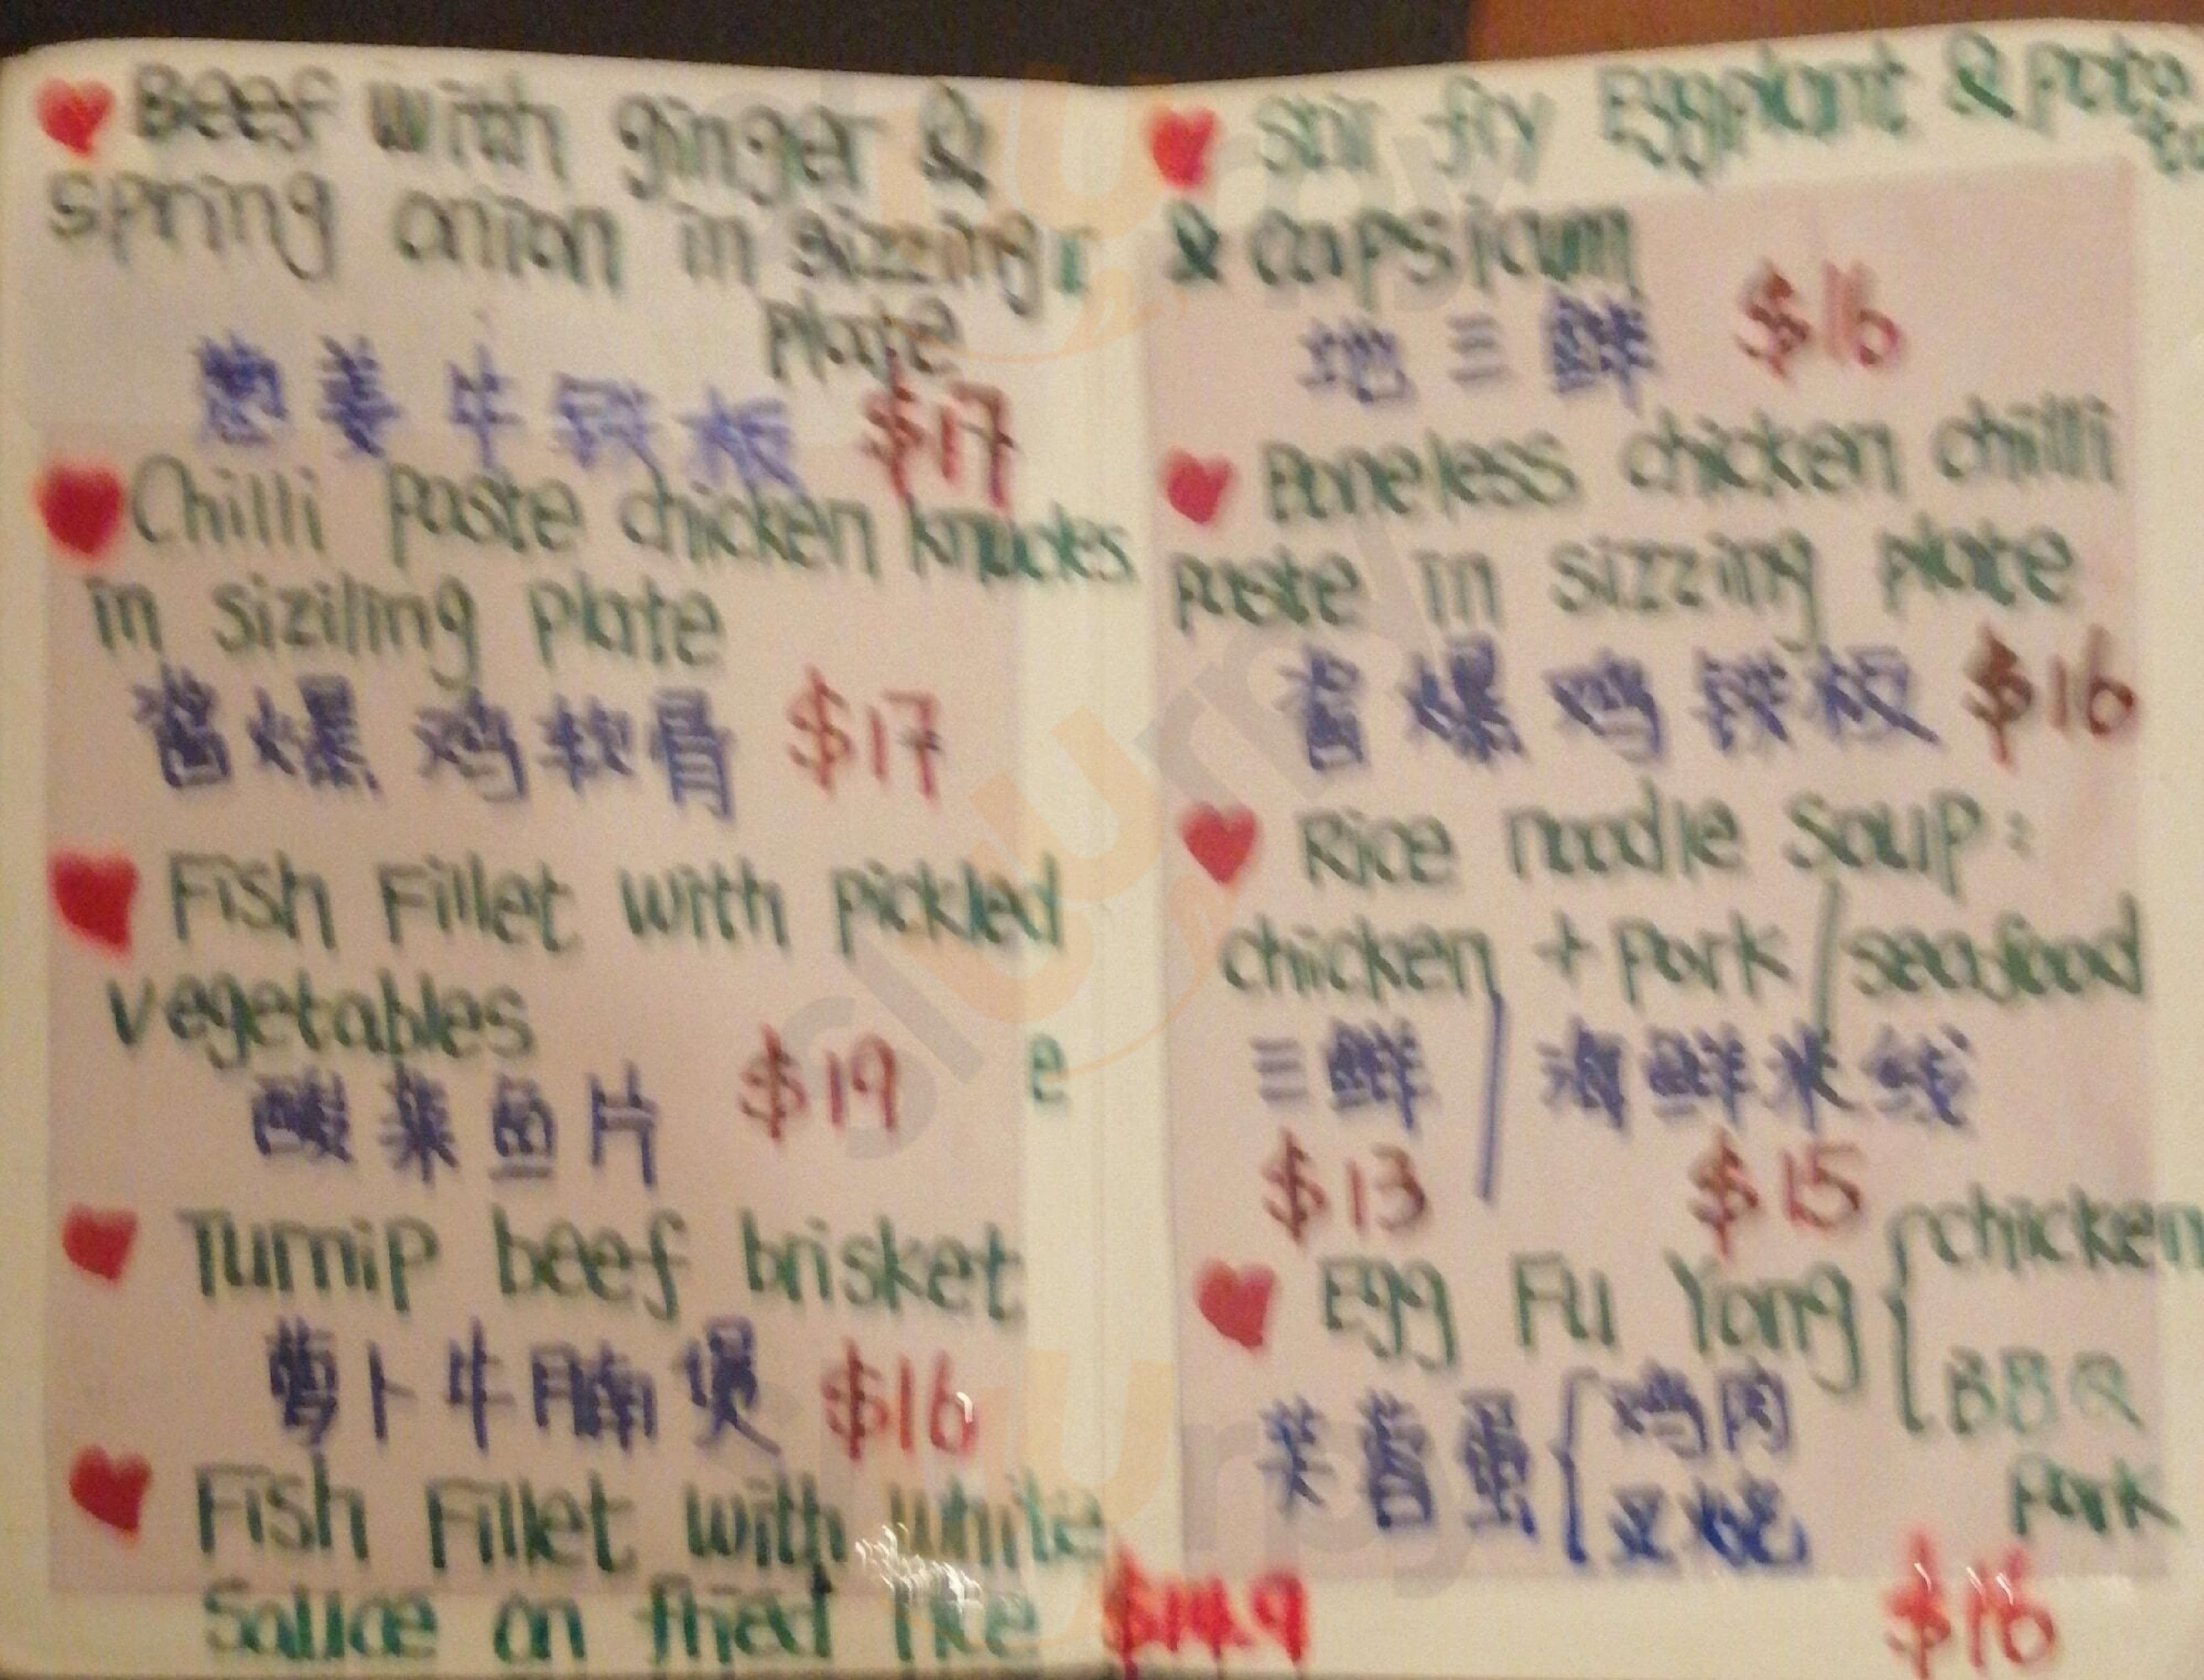 Beef with ginger &
spring onion in sizzing
plate
葱姜牛铁板 $17
Chilli paste chicken knuckles
in siziling plate
酱爆鸡软骨 $17
Fish Fillet with pickled
vegetables
酸菜鱼片 $19
e
Turnip beef brisket
萝卜牛腩煲 $16
Fish Fillet with white
Sauce on fried rice $14.9
Stir fry Eggplant & pota
to
& capsicum
地三鲜 $16
Boneless chicken chilli
paste in sizzing plate
酱爆鸡铁板 $16
Rice noodle soup:
chicken + pork / seafood
三鲜 / 海鲜米线
$13 $15
Egg Fu Yong { chicken
BBQ
pork
芙蓉蛋 { 鸡肉
叉烧
$16
slurpy